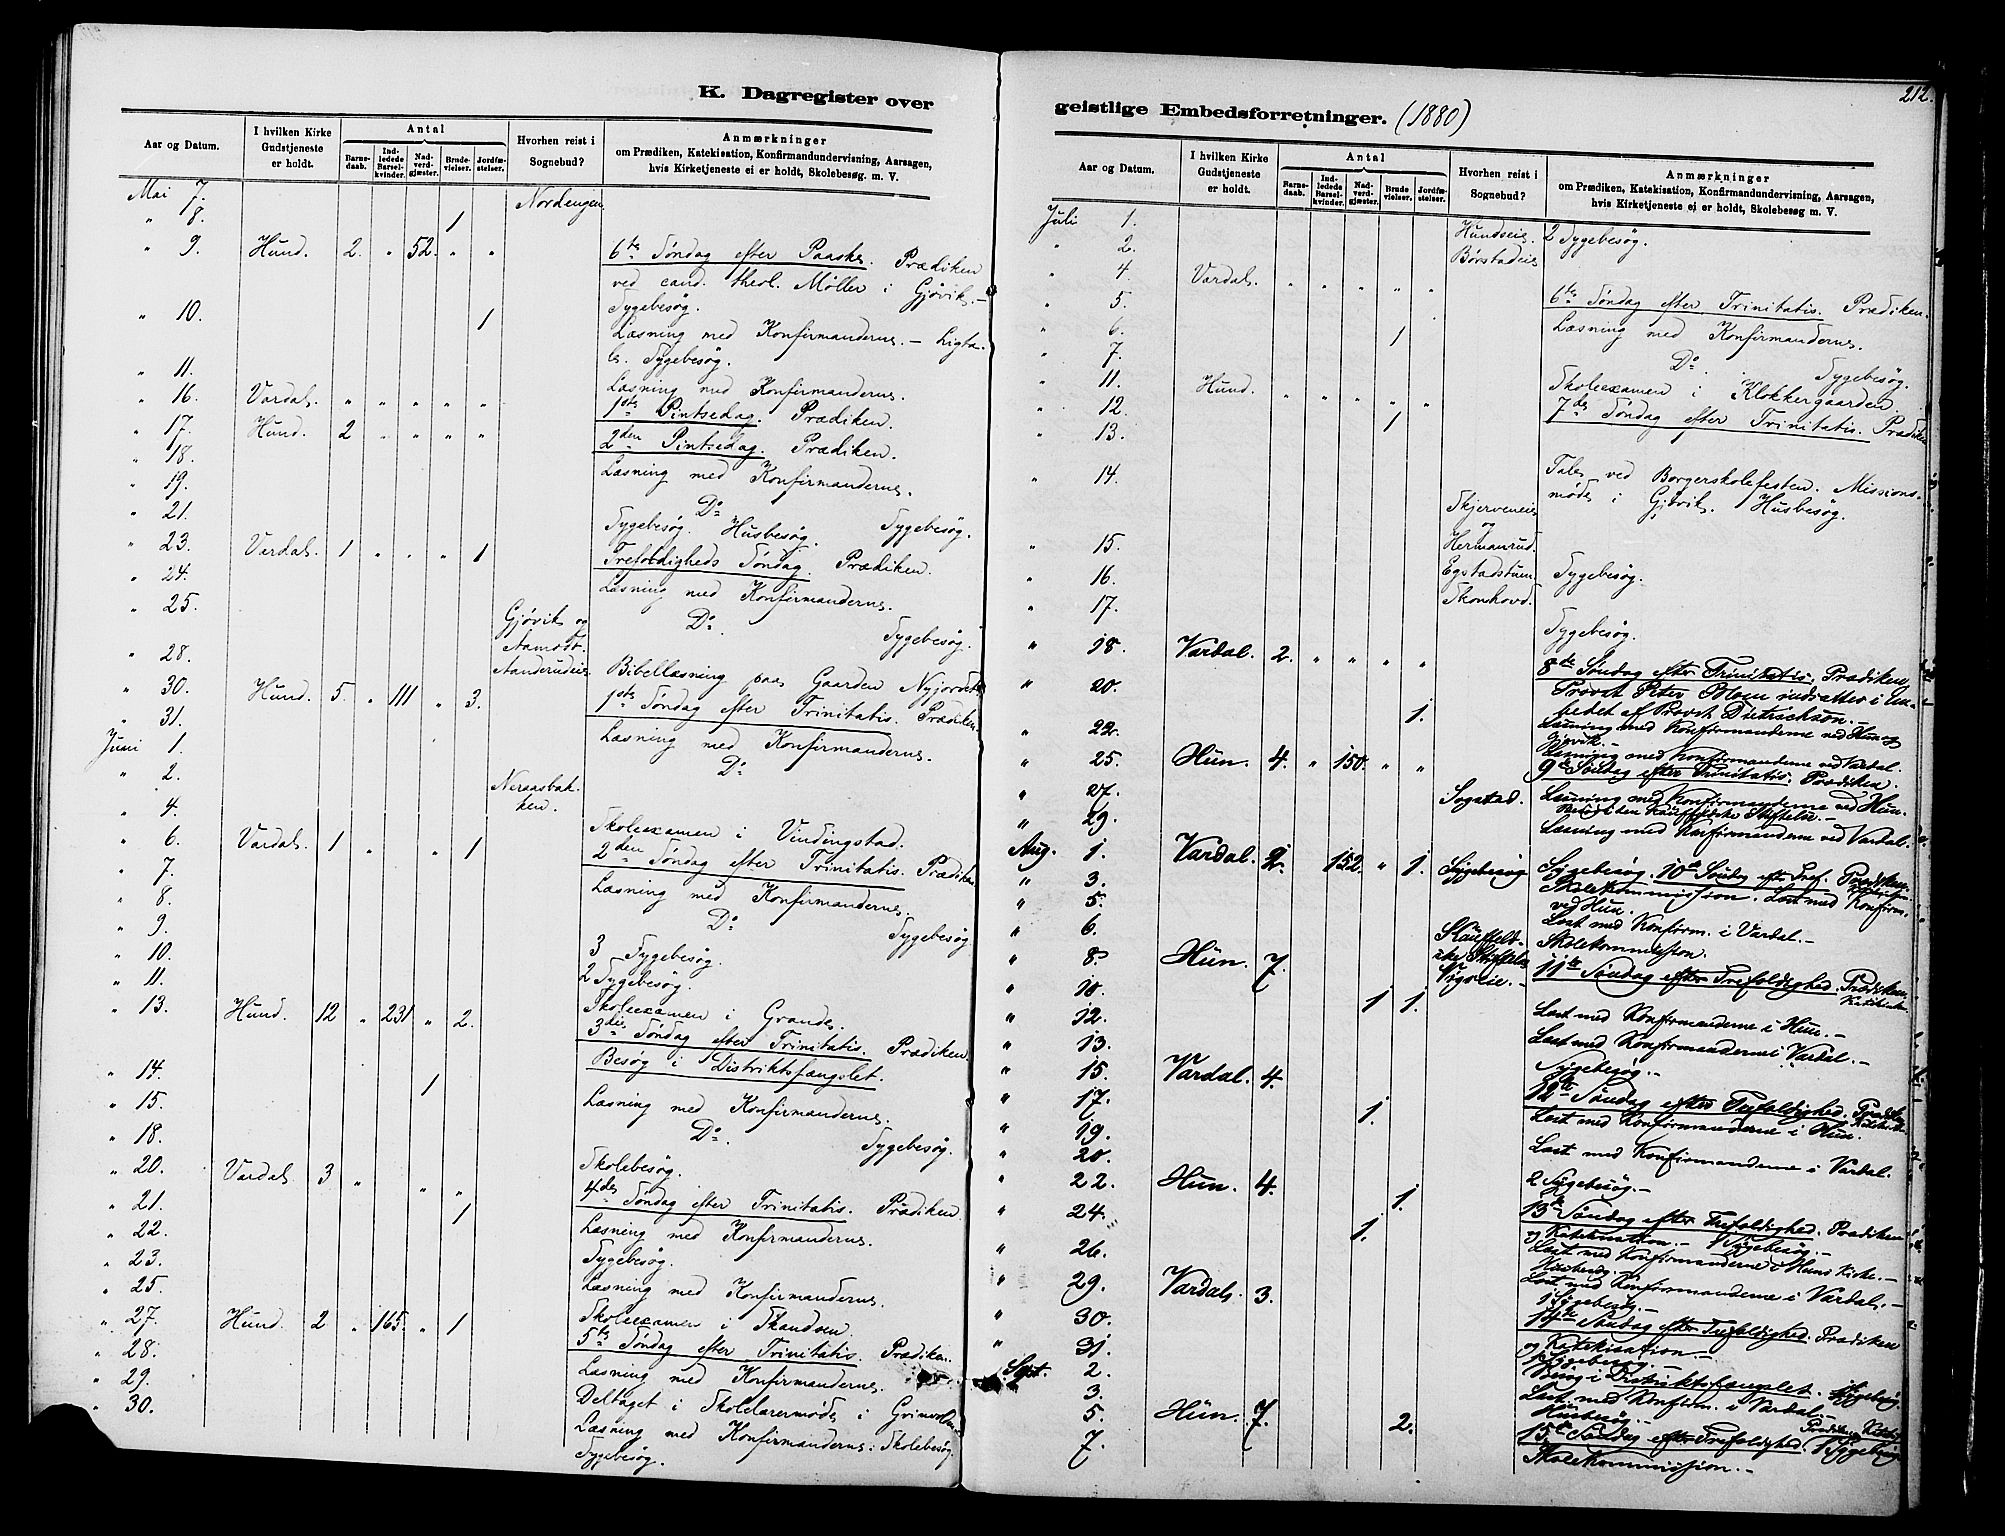 212.
K. Dagregister over
Aar og Datum.
I hvilken Kirke Gudstjeneste er holdt.
Antal
Barnedaab.
Indledede Barselkvinder.
Nadverdgjæster.
Brudevielser.
Jordfæstelser.
Hvorhen reist i Sognebud?
Anmærkninger
om Prædiken, Katekisation, Konfirmandundervisning, Aarsagen, hvis Kirketjeneste ei er holdt, Skolebesøg m. V.
Mai 7. Nordengen
" 8. 1
" 9. Hund. 2. " 52. " " 6te Søndag efter Paaske. Prædiken
ved cand. theol. Møller i Gjøvik.–
Sygebesøg.
" 10. 1 Læsning med Konfirmanderne. – Ligta-
le. Sygebesøg.
" 11. Læsning med Konfirmanderne.
" 16. Vardal. " " " " " 1ste Pintsedag. Prædiken.
" 17. Hund. 2 " " " " 2den Pintsedag. Prædiken.
" 18. Læsning med Konfirmanderne.
" 19. Do Sygebesøg.
" 21. Sygebesøg. Husbesøg.
" 23. Vardal. 1 " " " 1 Trefoldigheds Søndag. Prædiken.
" 24. Læsning med Konfirmanderne.
" 25. Gjøvik og Aamodt. Do. Sygebesøg.
" 28. Aanderudeie Bibellæsning paa Gaarden Nyjordet
" 30. Hund. 5 " 111 " 3. 1ste Søndag efter Trinitatis. Prædiken.
" 31. Læsning med Konfirmanderne.
Juni 1. Do
" 2. Neraasbak-
ken.
" 4. Skoleexamen i Vindingstad.
" 6. Vardal. 1 " " 1 2den Søndag efter Trinitatis. Prædiken.
" 7. Læsning med Konfirmanderne.
" 8. Do Sygebesøg
" 9. 3 Sygebesøg.
" 10. 2 Sygebesøg.
" 11. Skoleexamen i Grande.
" 13. Hund. 12 " 231 " 2. 3die Søndag efter Trinitatis. Prædiken.
Besøg i Distriktsfængslet.
" 14. 1 Læsning med Konfirmanderne.
" 15. Do. Sygebesøg.
" 18. Skolebesøg.
" 20. Vardal. 3 " " " 4de Søndag efter Trinitatis. Prædiken.
" 21. 1 Læsning med Konfirmanderne.
" 22. Sygebesøg.
" 23. Læsning med Konfirmanderne.
" 25. Skoleexamen i
" 27. Hund. 2 " 165. " 1 5te Søndag efter Trinitatis. Prædiken.
" 28. Læsning med Konfirmanderne.
" 29. Deltaget i Skolelærermøde i
" 30. Læsning med Konfirmanderne. Skolebesøg
Sygebesøg.
geistlige Embedsforretninger. (1880)
Aar og Datum.
I hvilken Kirke Gudstjeneste er holdt.
Antal
Barnedaab.
Indledede Barselkvinder.
Nadverdgjæster.
Brudevielser.
Jordfæstelser.
Hvorhen reist i Sognebud?
Anmærkninger
om Prædiken, Katekisation, Konfirmandundervisning, Aarsagen, hvis Kirketjeneste ei er holdt, Skolebesøg m. V.
Juli 1. Hundseie. 2 Sygebesøg.
" 2. Børstadeie
" 4. Vardal. " " " " " 6te Søndag efter Trinitatis. Prædiken.
" 5. Læsning med Konfirmanderne.
" 6. 1 Do. Sygebesøg.
" 7. Skoleexamen i Klokkergaarden
" 11. Hund. " " " " " 7de Søndag efter Trinitatis. Prædiken
" 12. 1
" 13. Tale ved Borgerskolefesten. Missions-
møde i Gjøvik. Husbesøg.
" 14. Skjerveneie
og
Hermanrud.
" 15. Egstadstuen. Sygebesøg.
" 16. Skonhovd.
" 17. Sygebesøg.
" 18. Vardal. 2. " " " " 8de Søndag efter Trinitatis. Prædiken
" 20. 1. Provst Peter Blom indsattes i Em-
bedet af Provst Dietrichson.–
" 22. Læsning med Konfirmanderne ved Hun og
Gjøvik.–
Læsning med Konfirmanderne ved Vardal.
" 25. Hun. 4. " 150. " " 9de Søndag efter Trinitatis. Prædiken.
" 27. Sogstad. Læsning med Konfirmanderne ved Hun.
Besøgt den Skauffeldtske Stiftelse.–
" 29. Læsning med Konfirmanderne ved Vardal.
Aug. 1. Vardal. 2. 152. " 1. Sygebesøg Sygebesøg. 10de Søndag efter Tref. Prædiken.
" 3. Skolekommission. Læst med Konfirm.
ved Hun.
" 5. Læst med Konfirm. i Vardal.–
" 6. Skolekommission.
" 8. Hun. 7. 11te Søndag efter Trefoldighed. Prædiken.
" 10. 1 1. Læst med Konfirmanderne i Hun.–
" 12. Læst med Konfirmanderne i Vardal.–
" 13. Sygebesøg.–
" 15. Vardal. 4. 12te Søndag efter Trefoldighed.
" 17. 1. Læst med Konfirmanderne i Hun.
" 19. Læst med Konfirmanderne i Vardal.
" 20. 2 Sygebesøg.–
" 22. Hun. 4. 1. 13de Søndag efter Trefoldighed. Prædiken
og Katekisation.– 1 Sygebesøg.–
" 24. 1. Læst med Konfirmanderne i Huns Kirke.–
Husbesøg.
" 26. Læst med Konfirmanderne i Vardal.–
1 Sygebesøg.–
" 29. Vardal. 3. 14de Søndag efter Trefoldighed. Prædiken
og Katekisation.–
" 30. Sygebesøg.–
" 31. Besøg i Distriktsfængslet.
Sept. 2. Læst med Konfirm. i Vardal.–
3. Husbesøg.–
5. Hun. 7. 2. 15de Søndag efter Trefoldighed. 1 Sygebesøg
7. Skolekommission.–